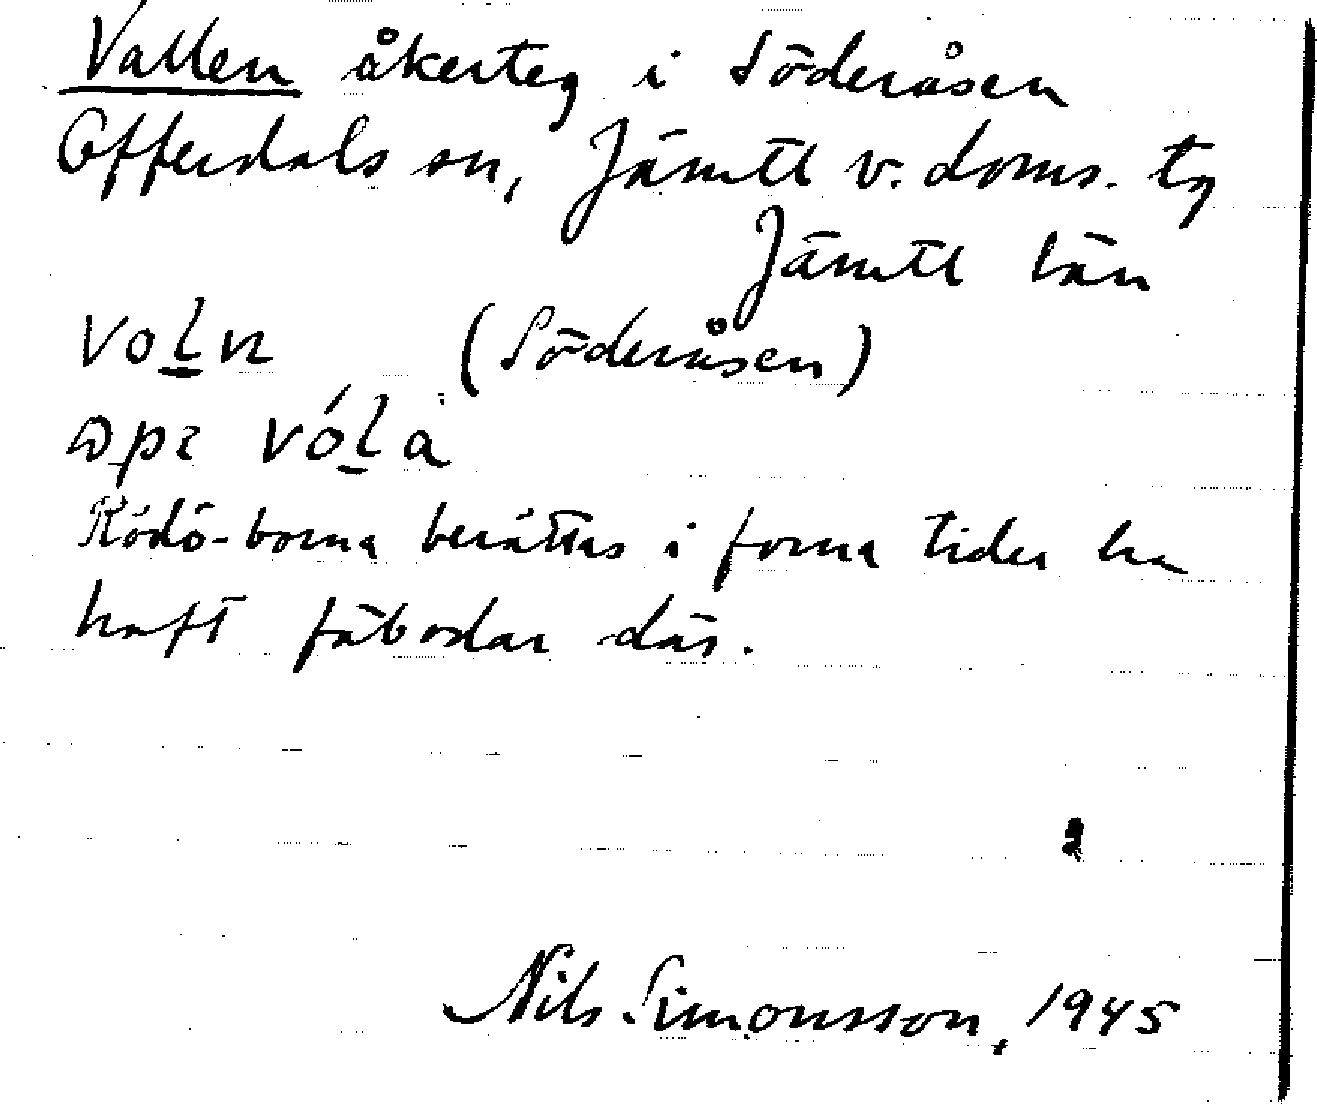 Vallen åkerteg i Söderåsen
Offerdals sn, Jämtl v. doms. tg
Jämtl län
voḻn (Söderåsen)
vóḻa
Rödö-borna berättas i forna tider ha
haft fäbodar där.
Nils Simonsson, 1945